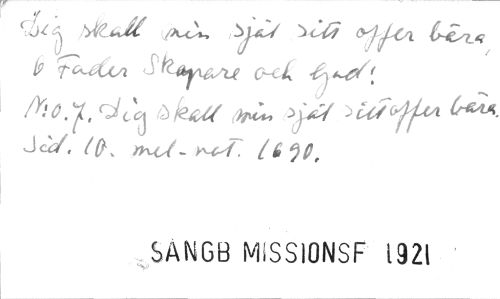 Dig skall min själ sitt offer bära,
O Fader Skapare och Gud!
N:o. 7. Dig skall min själ sitt offer bära.
Sid. 10. mel-not. 1690.
SÅNGB MISSIONSF 1921